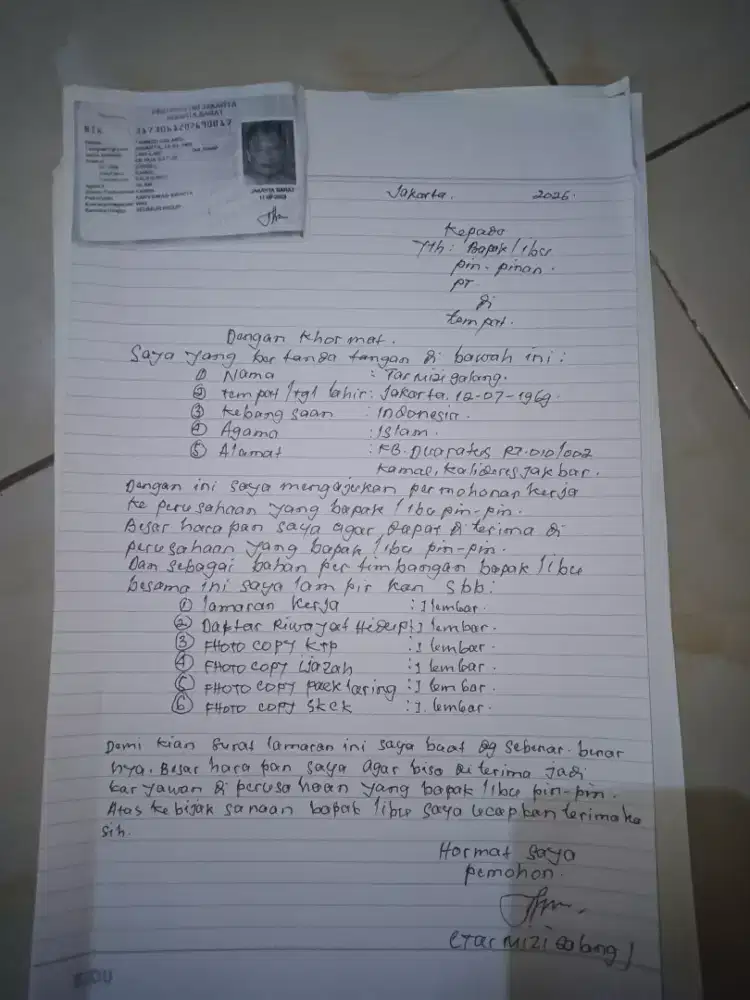 NIK
JAKARTA BARAT
Jakarta, 2026.
Kepada
Yth: Bapak/ibu
pin-pinan.
PT
di
tempat.
Dengan Khormat.
Saya yang ber tanda tangan di bawah ini:
① Nama : Tarmizi galang.
② tempat/tgl lahir: Jakarta. 12-07-1969.
③ kebang saan : Indonesia.
④ Agama : Islam.
⑤ Alamat : KB. Duaratus RT.010/002
Kamal, Kalideres Jakbar.
Dengan ini saya mengajukan permohonan kerja
ke perusahaan yang bapak/ibu pin-pin.
Besar hara pan saya agar, dapat di terima di
perusahaan yang bapak/ibu pin-pin.
Dan sebagai bahan per tim bangan bapak/ibu
besama ini saya lam pir kan sbb:
① lamaran kerja : 1 lembar.
② Daptar Riwayat Hidup : 1 lembar.
③ FHOTO COPY KTP : 1 lembar.
④ FHOTO COPY ijazah : 1 lembar.
⑤ FHOTO COPY packlaring : 1 lembar.
⑥ FHOTO COPY Skck : 1 lembar.
Demi kian surat lamaran ini saya buat dg sebenar-benar
nya. Besar hara pan saya agar bisa di terima jadi
kar yawan di perusahaan yang bapak/ibu pin-pin.
Atas kebijak sanaan bapak/ibu saya ucapkan terimaka
sih.
Hormat saya
pemohon.
(Tarmizi galang)